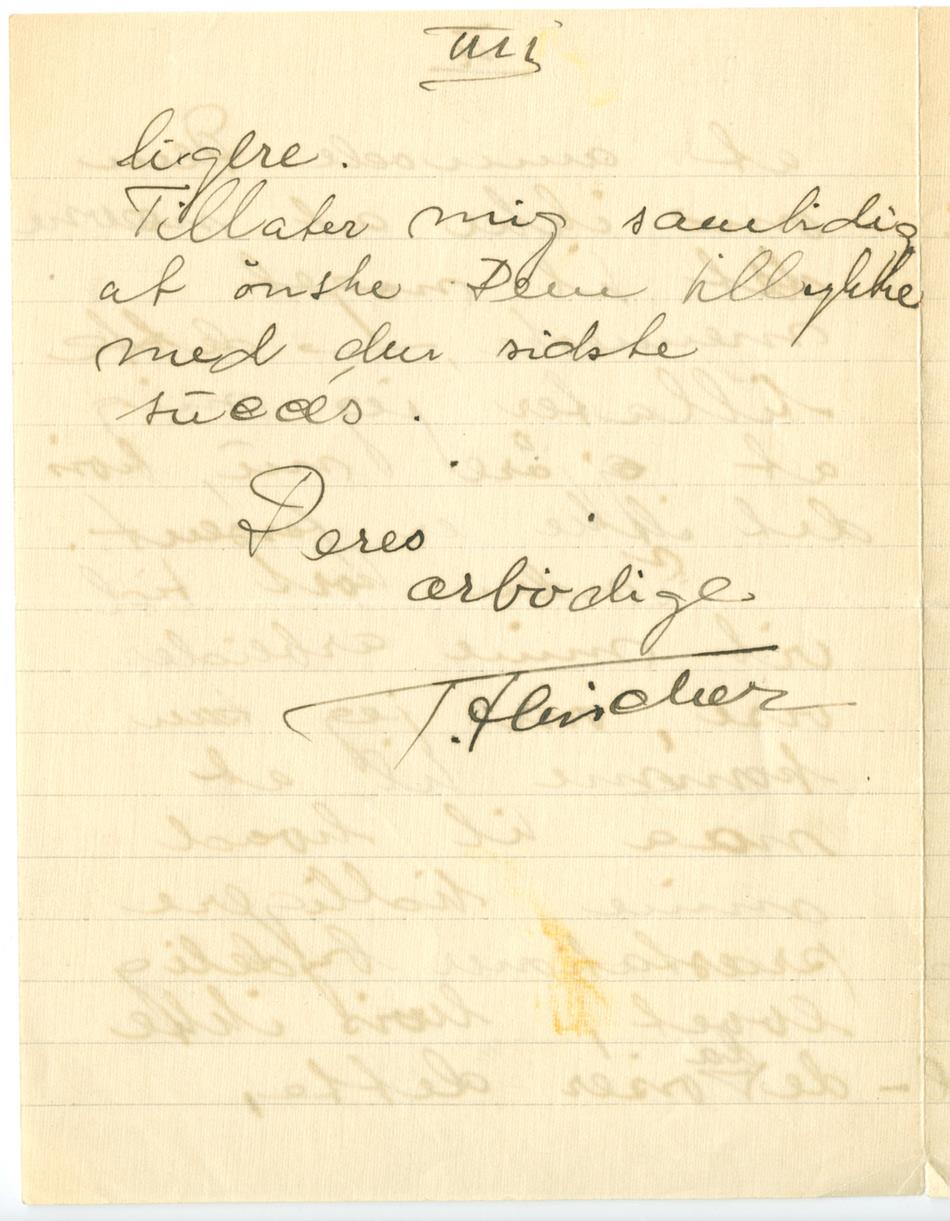 III
ligere.
Tillater mig samtidig
at önske Dem tillykke
med den sidste
succés.
Deres
ærbødige